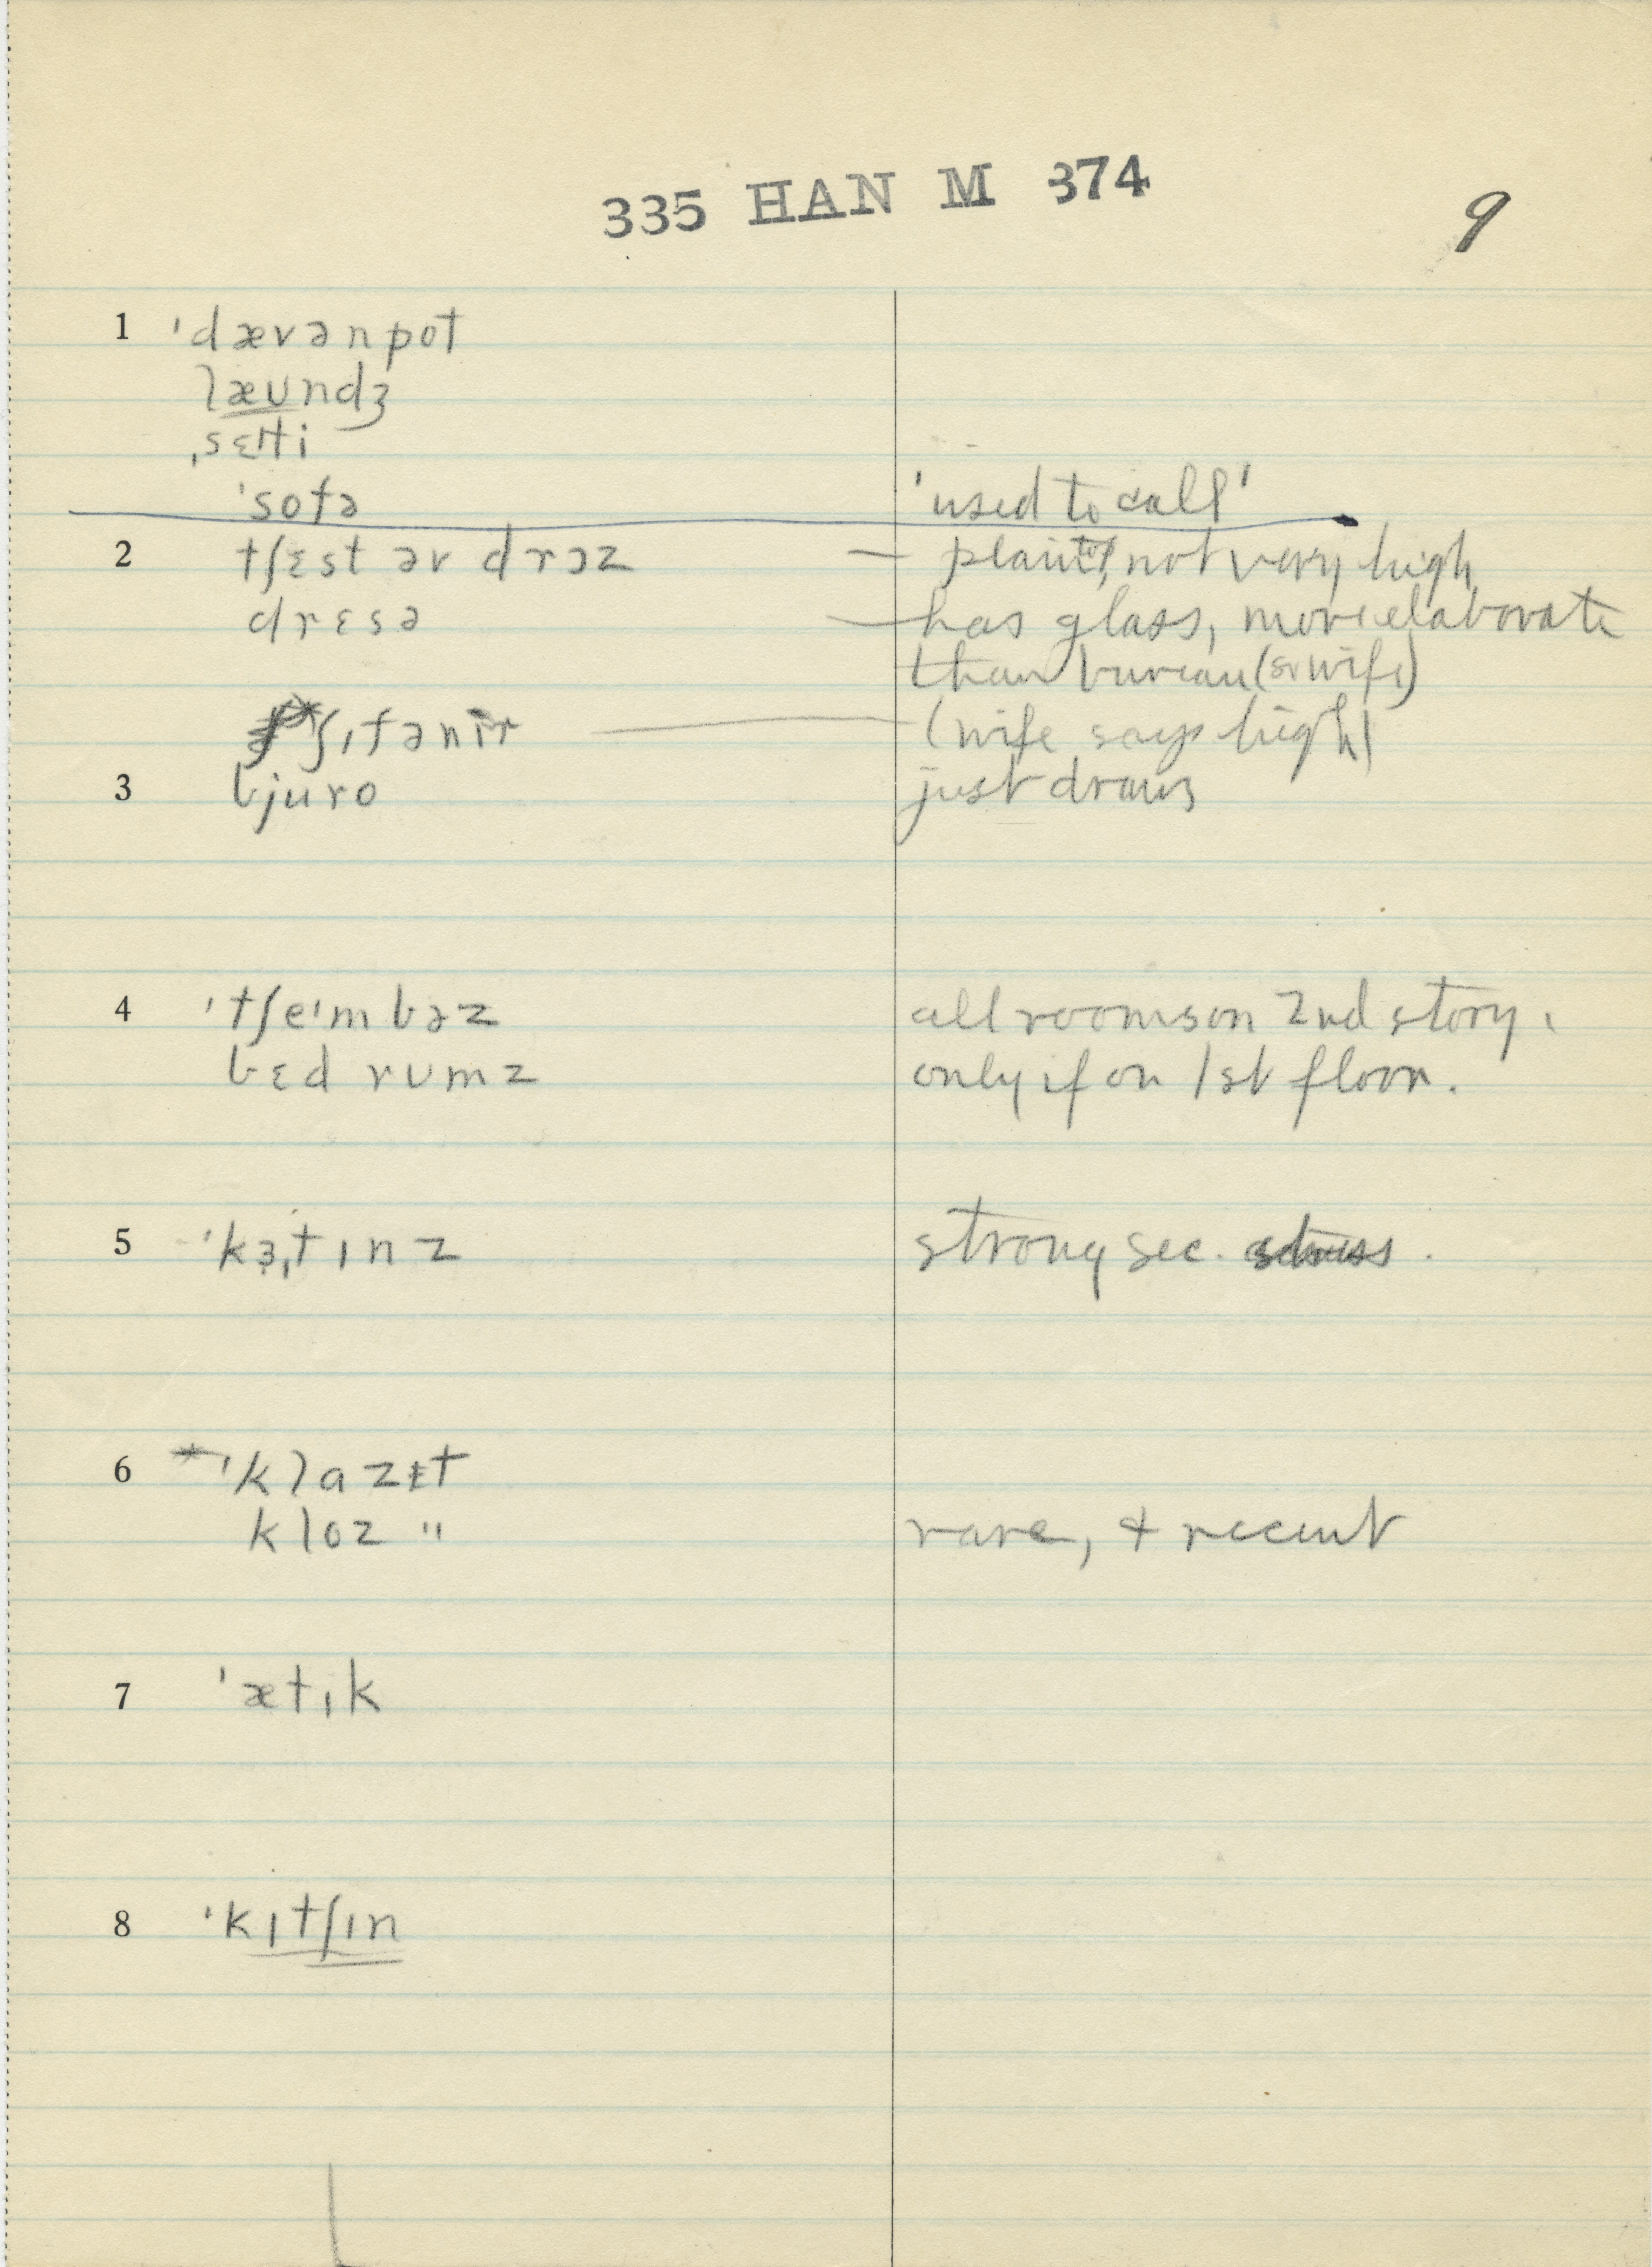 335 HAN M 374
9
1 ˈdævənpot
læʊndʒ
ˌsɛtti
ˈsofə 'used to call'
2 tʃɛst əv drɔz — plain top, not very high
drɛsə — has glass, more elaborate
than bureau (so wife)
ʃɪfənɪr — (wife says high)
3 bjuro just draws
4 ˈtʃeɪmbəz all rooms on 2nd story.
bɛd rumz only if on 1st floor.
5 ˈkɜˌtɪnz strong sec. stress.
6 *ˈklazɛt
kloz " rare, + recent
7 ˈætɪk
8 ˈkɪtʃɪn